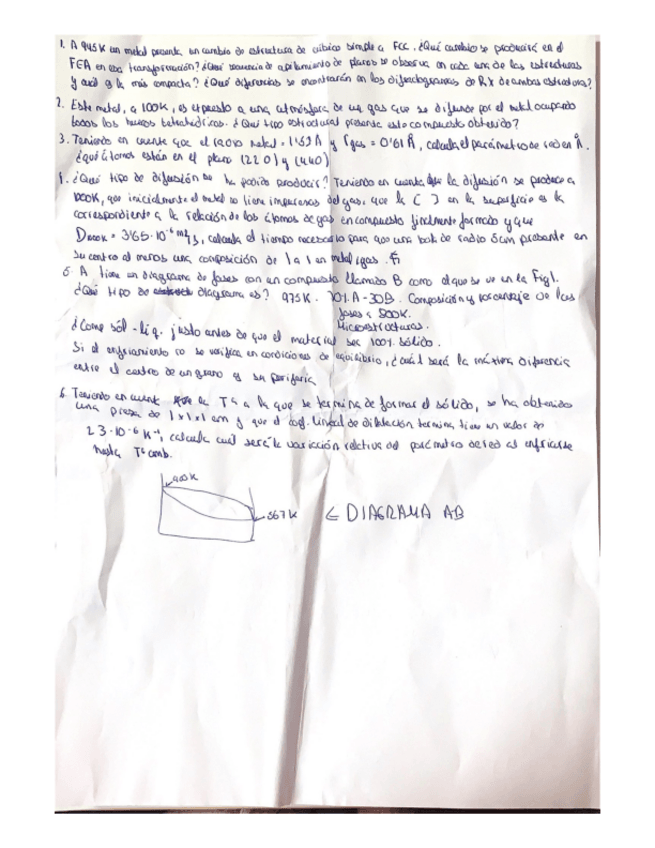 1. A 945 K un metal presenta un cambio de estructura de cúbico simple a FCC. ¿Qué cambio se producirá en el
FEA en esa transformación? ¿Qué secuencia de apilamiento de planos se observa en cada una de las estructuras
y cuál es la más compacta? ¿Qué diferencias se encontrarán en los difractogramas de Rx de ambas estructuras?
2. Este metal, a 100K, es expuesto a una atmósfera de un gas que se difunde por el metal ocupando
todos los huecos tetraédricos. ¿Qué tipo estructural presenta este compuesto obtenido?
3. Teniendo en cuenta que el radio metal = 1'69 Å y r gas = 0'61 Å, calcula el parámetro de red en Å.
¿qué átomos están en el plano (220) y (440)
4. ¿Qué tipo de difusión se ha podido producir? Teniendo en cuenta que la difusión se produce a
1000K, que inicialmente el metal no tiene impurezas del gas, que la [ ] en la superficie es la
correspondiente a la relación de los átomos de gas en compuesto finalmente formado y que
D1000K = 3'65·10⁻⁶ m²/s, calcula el tiempo necesario para que una bola de radio 5cm presente en
su centro al menos una composición de 1 a 1 en metal/gas.
5. A tiene un diagrama de fases con un compuesto llamado B como el que se ve en la Fig1.
¿Qué tipo de diagrama es? 975K. 70% A-30B. Composición y porcentaje de las
fases a 800K.
Microestructuras.
¿Comp sól-liq. justo antes de que el material sea 100% sólido.
Si el enfriamiento no se verifica en condiciones de equilibrio, ¿cuál será la máxima diferencia
entre el centro de un grano y su periferia
6. Teniendo en cuenta la Tª a la que se termina de formar el sólido, se ha obtenido
una pieza de 1x1x1 cm y que el coef. lineal de dilatación térmica tiene un valor de
23·10⁻⁶ K⁻¹, calcula cuál será la variación relativa del parámetro de red al enfriarse
hasta Tª amb.
900K
567 K
← DIAGRAMA AB